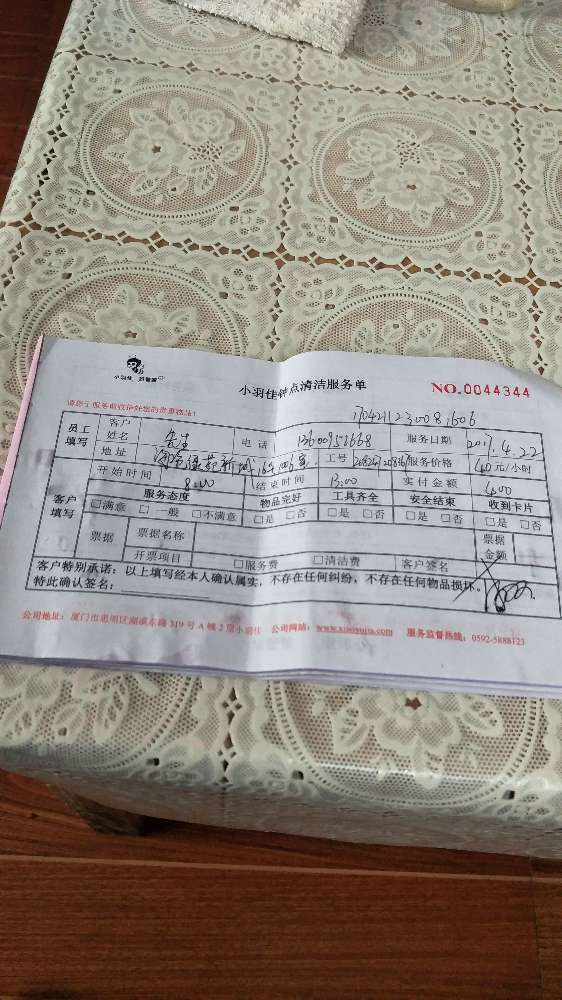 小羽佳
小羽佳钟点清洁服务单
NO.0044344
员工填写 客户姓名 先生 电话 服务日期 2017.4.22
地址 工号 服务价格 40元/小时
开始时间 8:00 结束时间 13:00 实付金额
客户填写 服务态度 物品完好 工具齐全 安全结束 收到卡片
□满意 □一般 □不满意 □是 □否 □是 □否 □是 □否 □是 □否
票据 票据名称 票据金额
开票项目 □服务费 □清洁费 客户签名
客户特别承诺：以上填写经本人确认属实，不存在任何纠纷，不存在任何物品损坏。
特此确认签名：
公司地址：厦门市思明区湖滨东路319号A幢2层小羽佳 公司网站：www.xiaoyujia.com 服务监督热线：0592-5888123